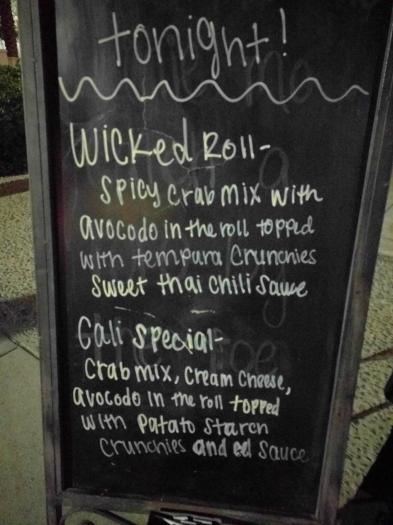 tonight!
Wicked Roll-
Spicy Crab mix with
avocodo in the roll topped
with tempura Crunchies
Sweet thai chili Sauce
Cali Special-
Crab mix, Cream Cheese,
avocodo in the roll topped
with Patato Starch
Crunchies and eel Sauce